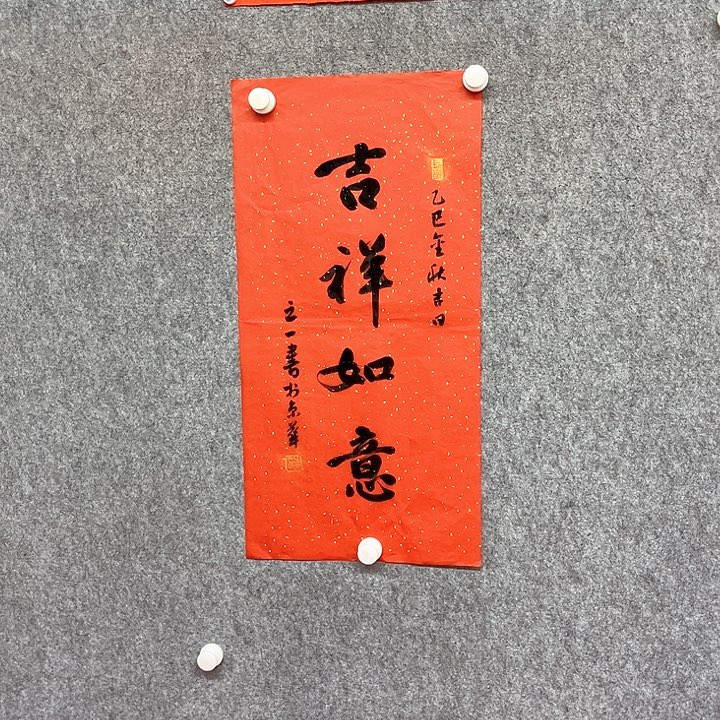 乙巳金秋吉日
吉祥如意
立一書於京華